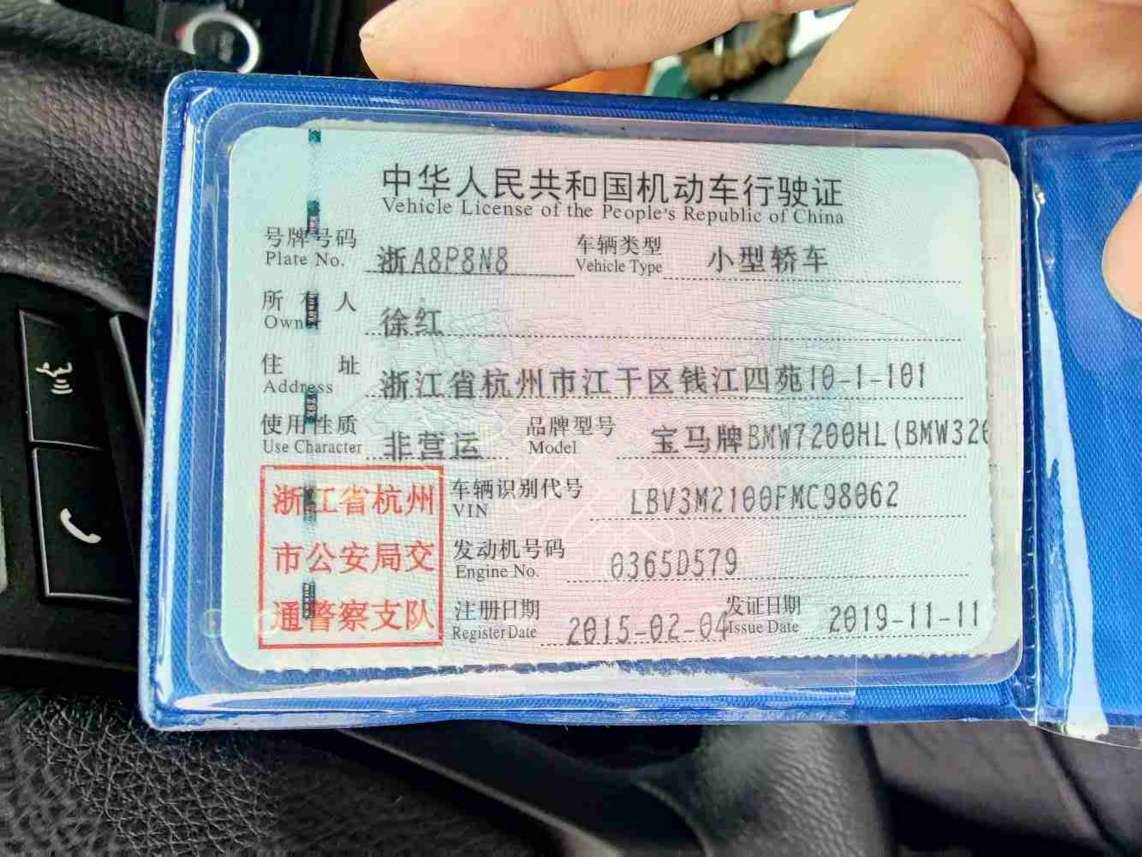 中华人民共和国机动车行驶证
Vehicle License of the People's Republic of China
号牌号码 浙A8P8N8 车辆类型 小型轿车
Plate No. Vehicle Type
所有人 徐红
Owner
住址 浙江省杭州市江干区钱江四苑10-1-101
Address
使用性质 非营运 品牌型号 宝马牌BMW7200HL(BMW320
Use Character Model
浙江省杭州
市公安局交
通警察支队
车辆识别代号 LBV3M2100FMC98062
VIN
发动机号码 0365D579
Engine No.
注册日期 2015-02-04 发证日期 2019-11-11
Register Date Issue Date